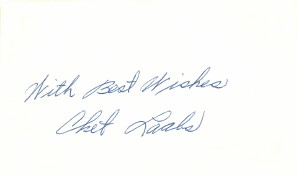 With Best Wishes
Chet Laabs